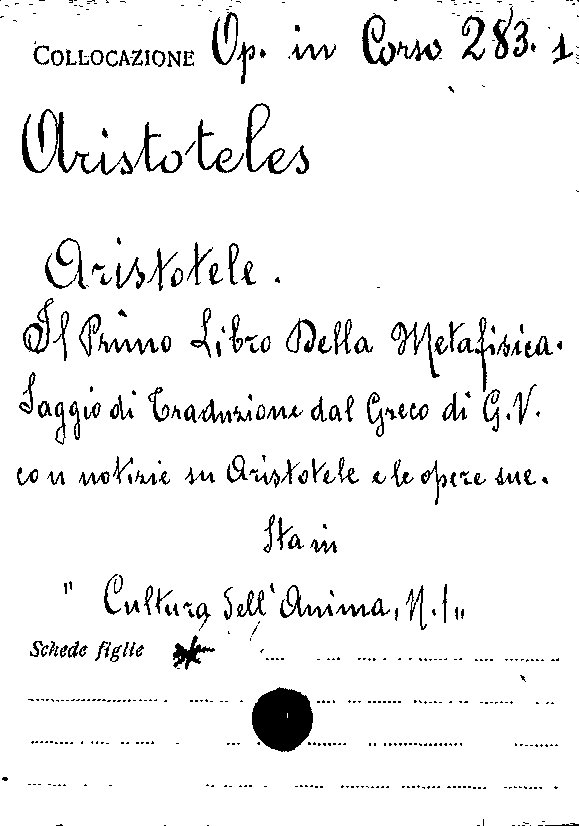 COLLOCAZIONE Op. in Corso 283. 1
Aristoteles
Aristotele.
Il Primo Libro Della Metafisica.
Saggio di Traduzione dal Greco di G.V.
con notizie su Aristotele e le opere sue.
Sta in
" Cultura dell'Anima, N. 1 "
Schede figlie